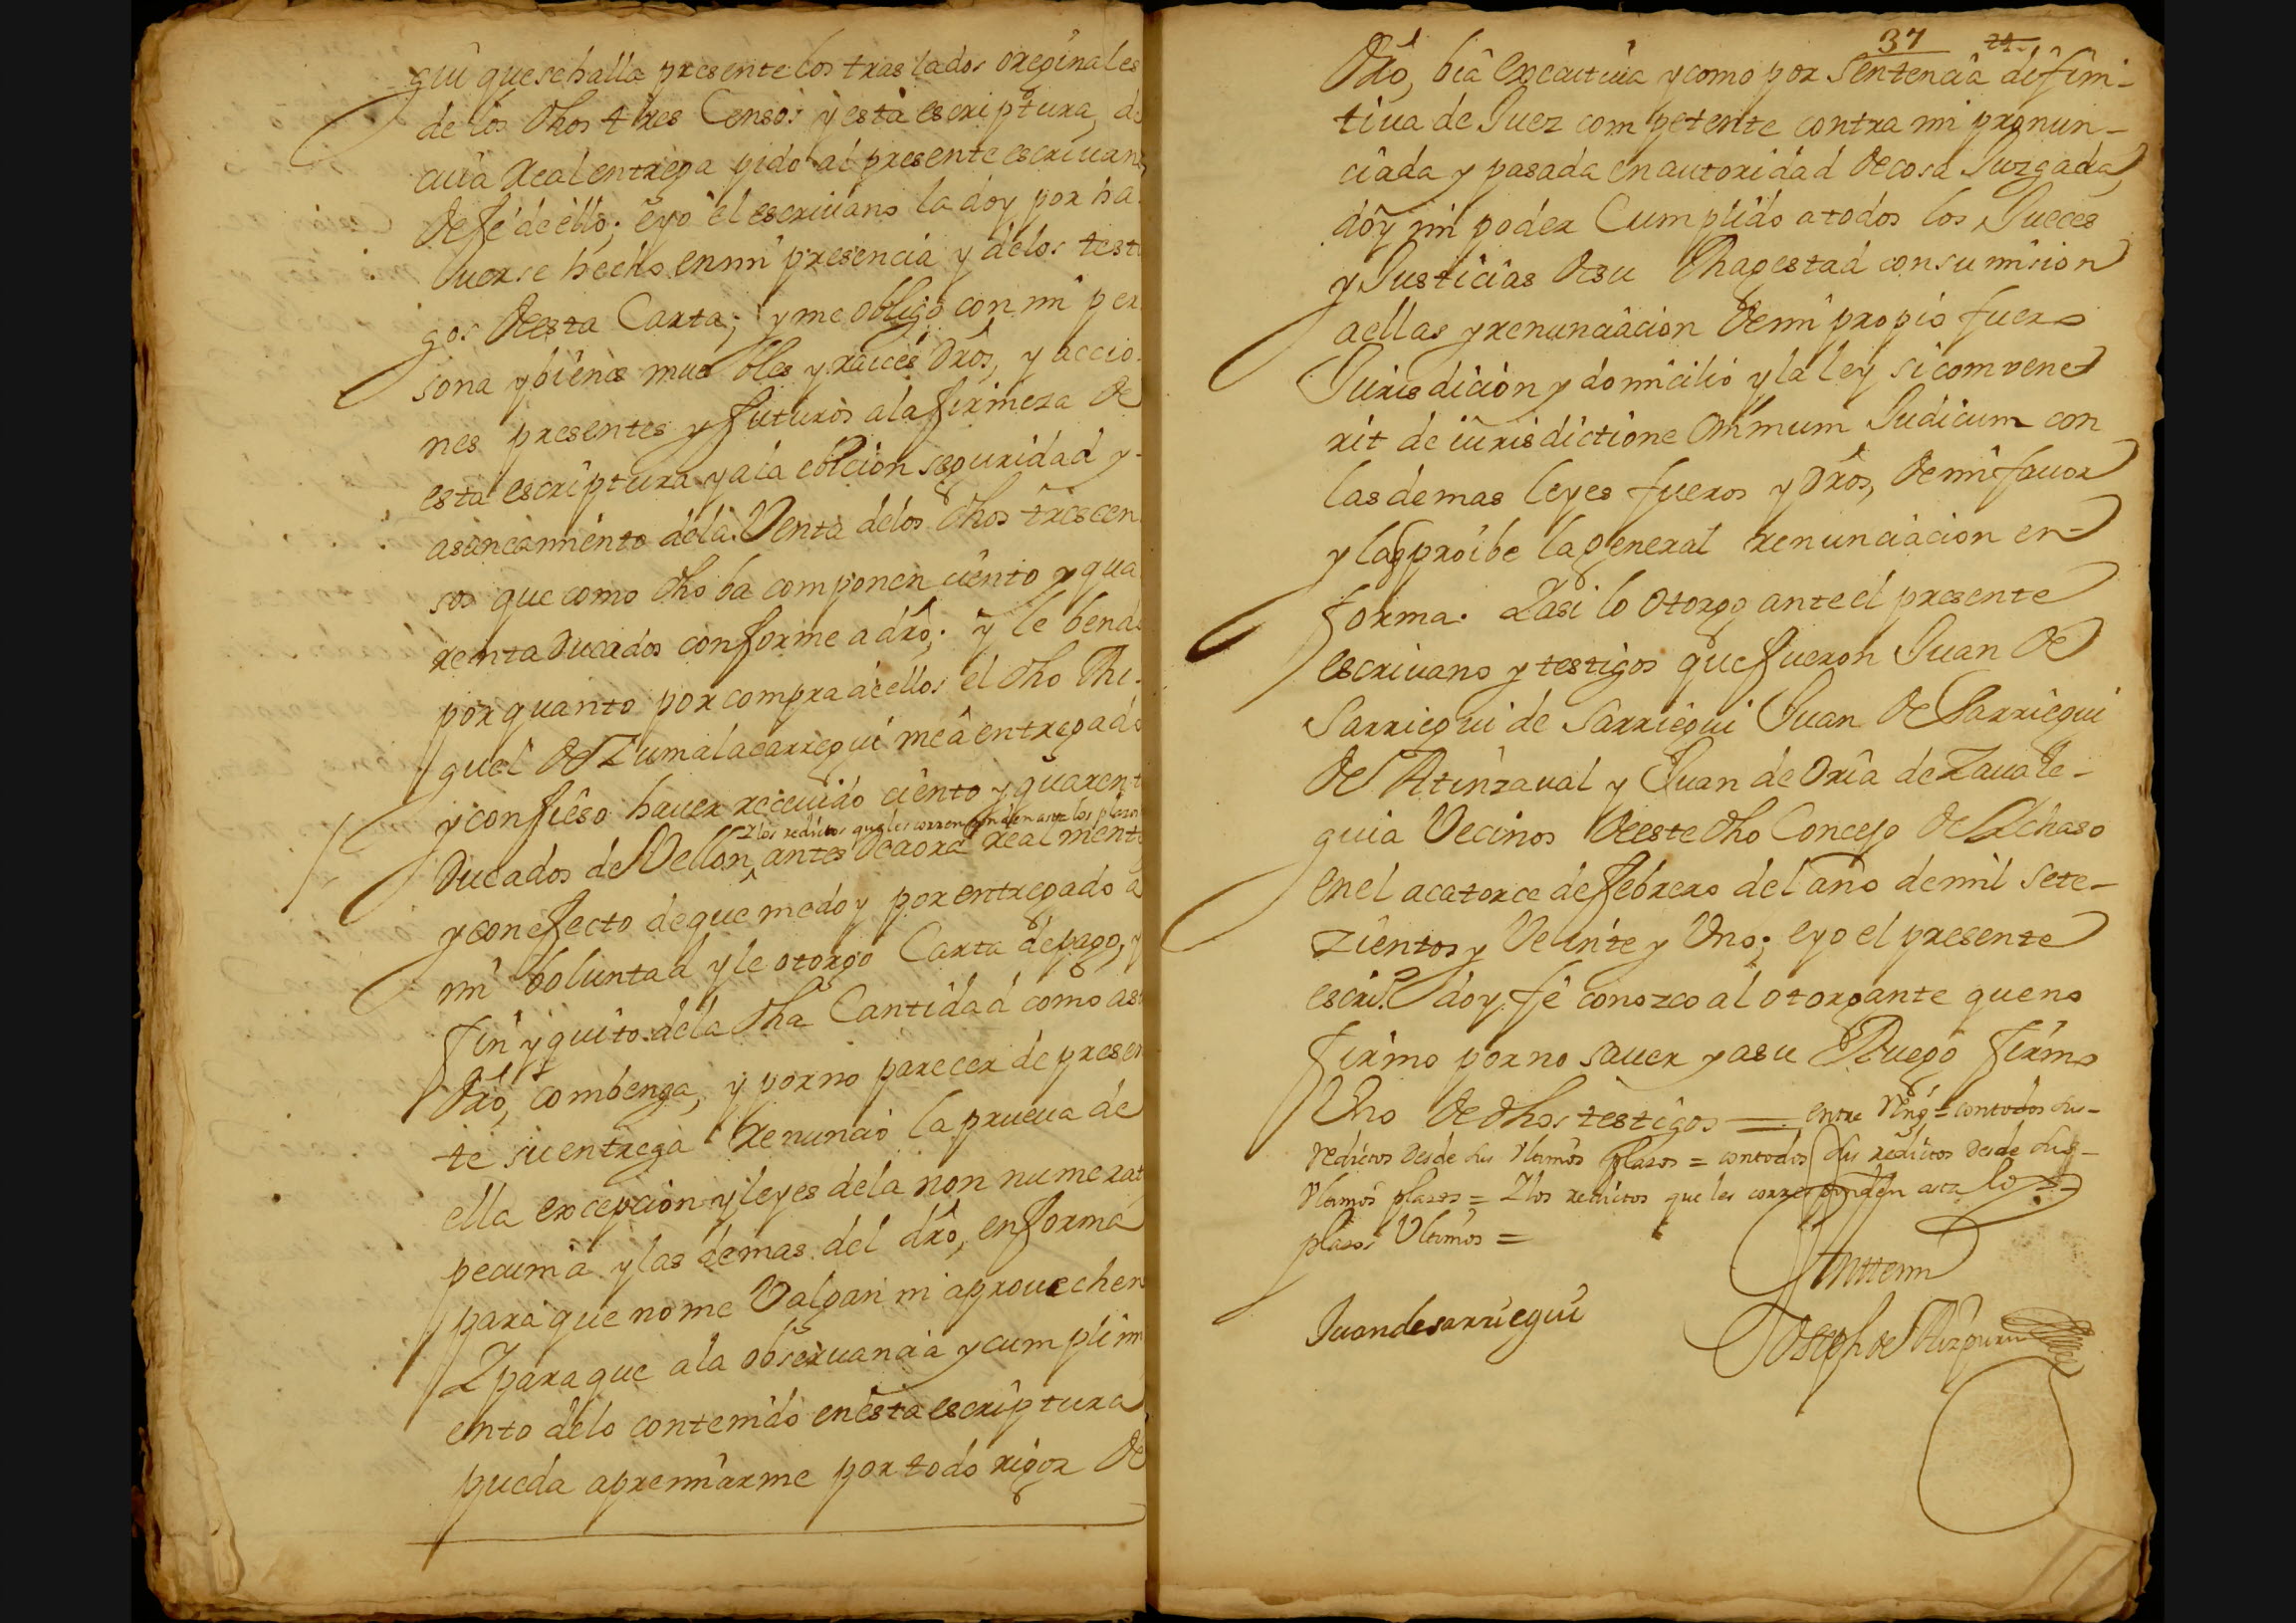 gui que se halla presente los traslados oreginales
de los dhos tres Censos y esta escriptura, de
cuia Real entrega pido al presente escriuano
de fé de ello; e yo el escriuano la doy por ha
uerse hecho en mi presencia y de los testi
gos de esta Carta; y me obligo con mi per
sona y bienes muebles y raices dros, y accio
nes presentes y futuros a la firmeza de
esta escriptura y a la eviccion seguridad y
asaneamiento de la Venta de los dhos tres cen
sos que como dho ba componen ciento y qua
renta Ducados conforme a dro; y le bendo
por quanto por compra de ellos el dho Mi
guel de Zumalacarregui me â entregado
y confieso hauer receuido ciento y quarenta
Y los redictos que les corresponden asta los plazos
Ducados de Vellon, antes de aora realmente
y con efecto de que me doy por entregado a
mi boluntad y le otorgo Carta de pago, y
fin y quito de la dha Cantidad como asi
dro, combenga, y por no parecer de presen
te su entrega renuncio la prueua de
ella excepcion y leyes de la non numerata
pecunia y las demas del dro, en forma
para que no me Valgan ni aprouechen
Y para que a la obseruancia y cumplimi
ento de lo contenido en esta escriptura
pueda apremiarme por todo rigor de
37
dro, bia executiua y como por Sentencia difini-
tiua de Juez competente contra mi pronun-
ciada y pasada en autoridad de cosa Juzgada
doy mi poder Cumplido a todos los Jueces
y Justicias de su Magestad con sumision
a ellas y renunciacion de mi propio fuero
Jurisdicion y domicilio y la ley si comvene
rit de iurisdictione Omnium Judicum con
las demas leyes fueros y dros, de mi fauor
y la q proibe la general renunciacion en
forma. Y asi lo otorgo ante el presente
escriuano y testigos que fueron Juan de
Sarriegui de Sarriegui Juan de Sarriegui
de Atinzaual y Juan de Oria de Zauale-
guia Vecinos de este dho Concejo de Achaso
en el a catorce de febrero del año de mil sete-
zientos y Veinte y Uno; e yo el presente
escriu.º doy fé conozco al otorgante que no
firmo por no sauer y a su Ruego firmo
Uno de dhos testigos = entre Reng = con todos sus
redictos desde sus Vltimos plazos = con todos sus redictos desde sus
Vltimos plazos = Y los redictos que les corresponden asta los
plazos Vltimos =
Ante mi
Juan de sarriegui
Joseph de Aizpuru